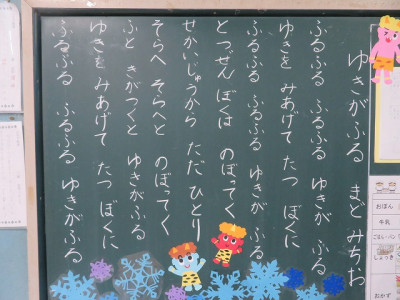 ゆきがふる　まど みちお
ふるふる　ふるふる　ゆきが　ふる
ゆきを　みあげて　たつ　ぼくに
ふるふる　ふるふる　ゆきが　ふる
とつぜん　ぼくは　のぼってく
せかいじゅうから　ただ　ひとり
そらへ　そらへと　のぼってく
ふと　きがつくと　ゆきがふる
ゆきを　みあげて　たつ　ぼくに
ふるふる　ふるふる　ゆきがふる
おぼん
牛乳
おかず